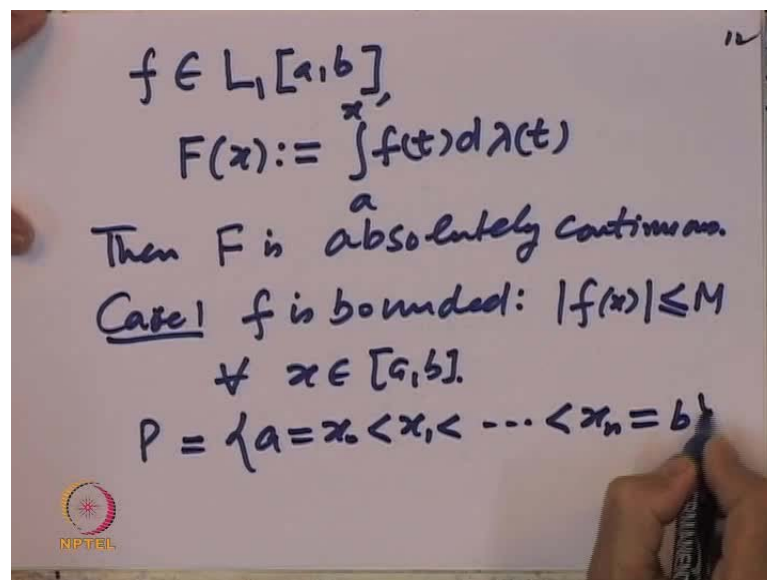 12
f ∈ L₁[a,b],
F(x) := ∫ₐˣ f(t) dλ(t)
Then F is absolutely continuous.
Case 1 f is bounded: |f(x)| ≤ M
∀ x ∈ [a,b].
P = {a = x₀ < x₁ < ··· < xₙ = b}
NPTEL